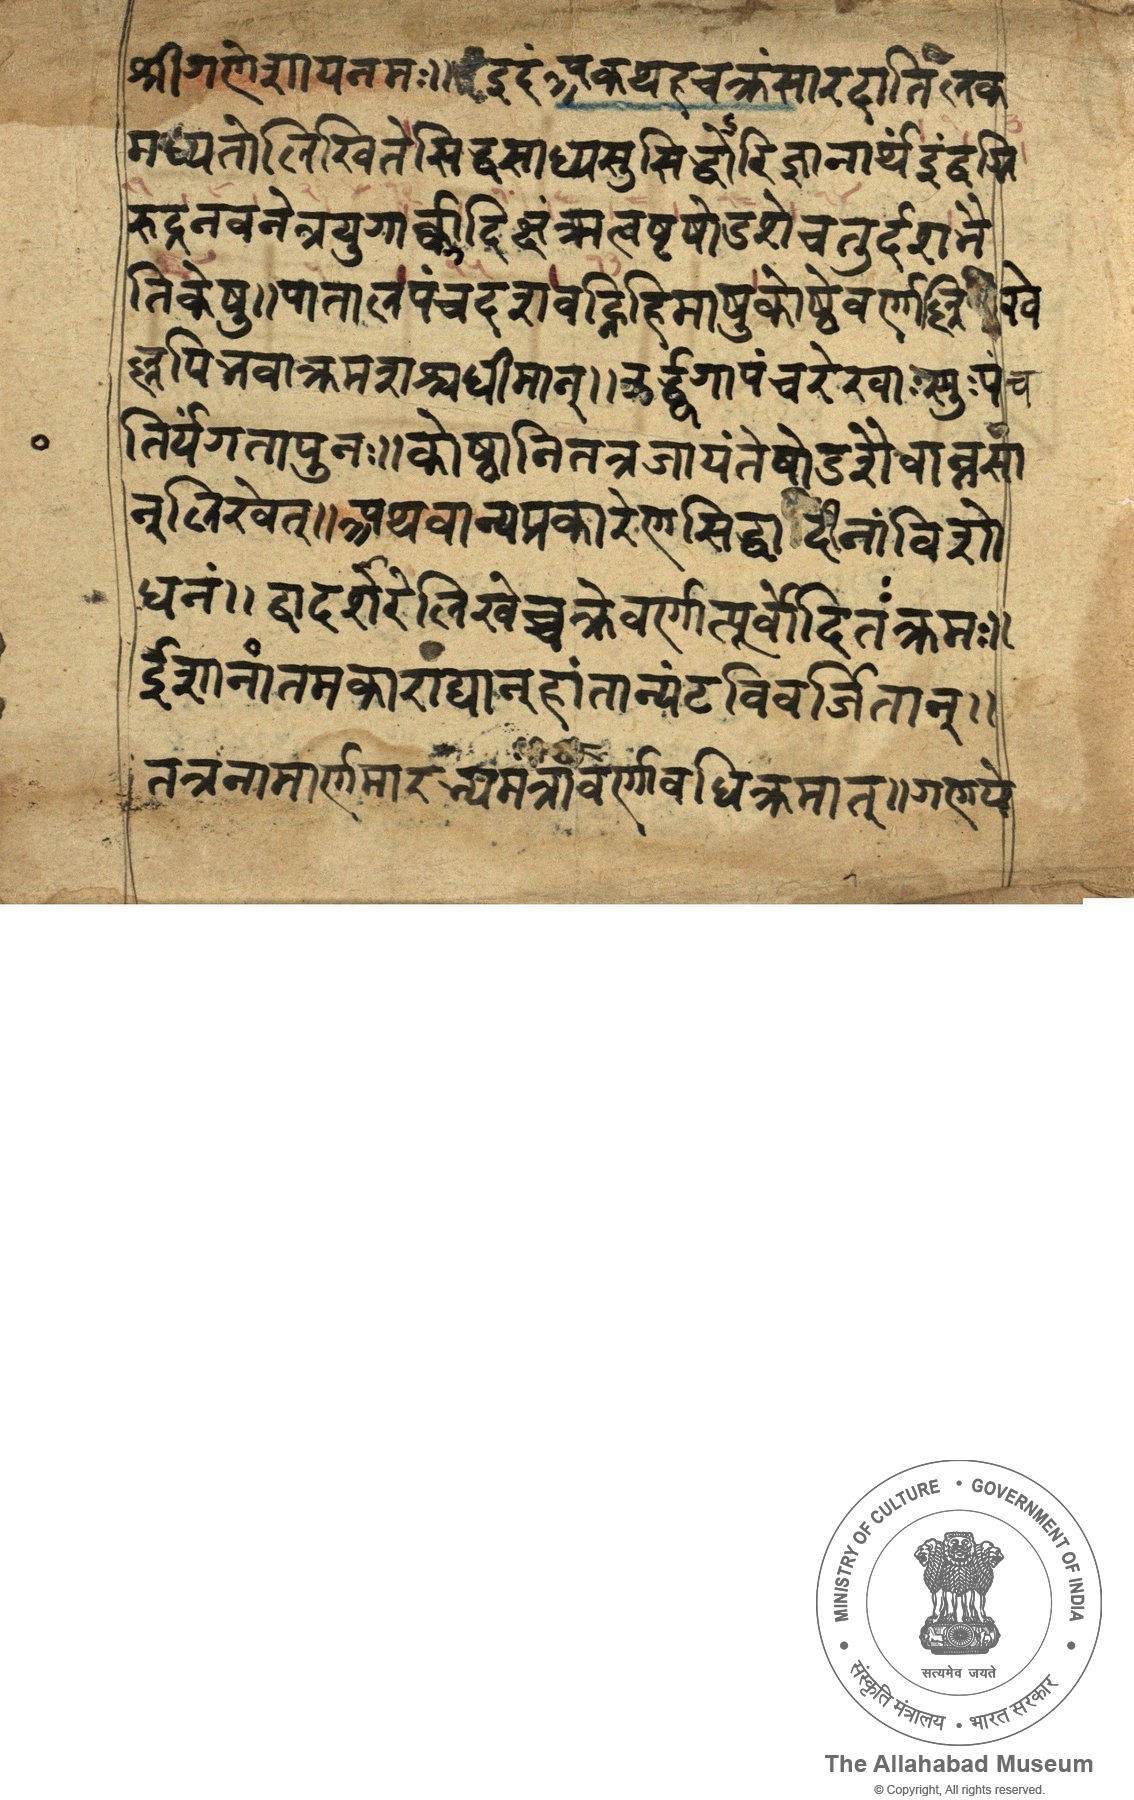 श्रीगणेशायनमः।।इदं अकथहचक्रंसारदातिलक
मध्यतोलिखितेसिद्धसाध्यसुसिद्धोऽरिज्ञानार्थंइंद्वग्नि
रुद्रनवनेत्रयुगा षोडशेचतुर्दशभै
तिकेषु।।पातालपंचदशवह्निहिमांषुकोष्ठेवर्णाल्लिखे
ल्लपिभवाक्रमशश्चधीमान्।।ऊर्द्ध्वगापंचरेखाःस्युःपंच
तिर्यगतापुनः।।कोष्ठानितत्रजायंतेषोडशैवान्नसां
न्लिखेत्।।अथवान्यप्रकारेणसिद्धादीनांविशो
धनं।। द्वादशारेलिखेच्चक्रेवर्णात्पूर्वोदितंक्रमः।।
ईशानांतमकारांद्यान्हांतान्यंटविवर्जितान्।।
तत्रनामार्णमारभ्यमंत्रावर्णावधिक्रमात्।।गणये
MINISTRY OF CULTURE • GOVERNMENT OF INDIA
सत्यमेव जयते
संस्कृति मंत्रालय • भारत सरकार
The Allahabad Museum
© Copyright, All rights reserved.